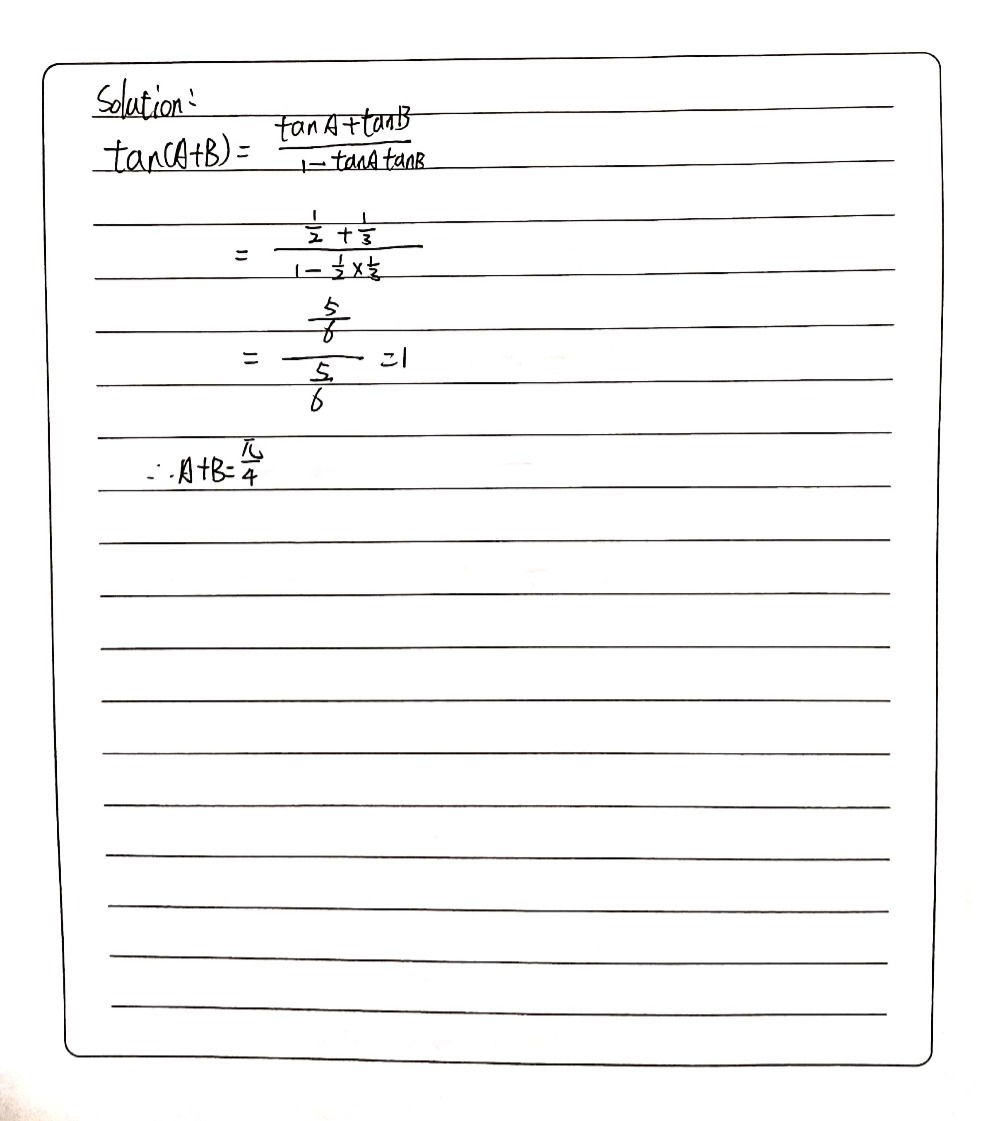 Solution:
tan(A+B) = \frac{tanA+tanB}{1-tanA tanB}
= \frac{\frac{1}{2}+\frac{1}{3}}{1-\frac{1}{2}×\frac{1}{3}}
= \frac{\frac{5}{6}}{\frac{5}{6}} =1
∴A+B=\frac{π}{4}